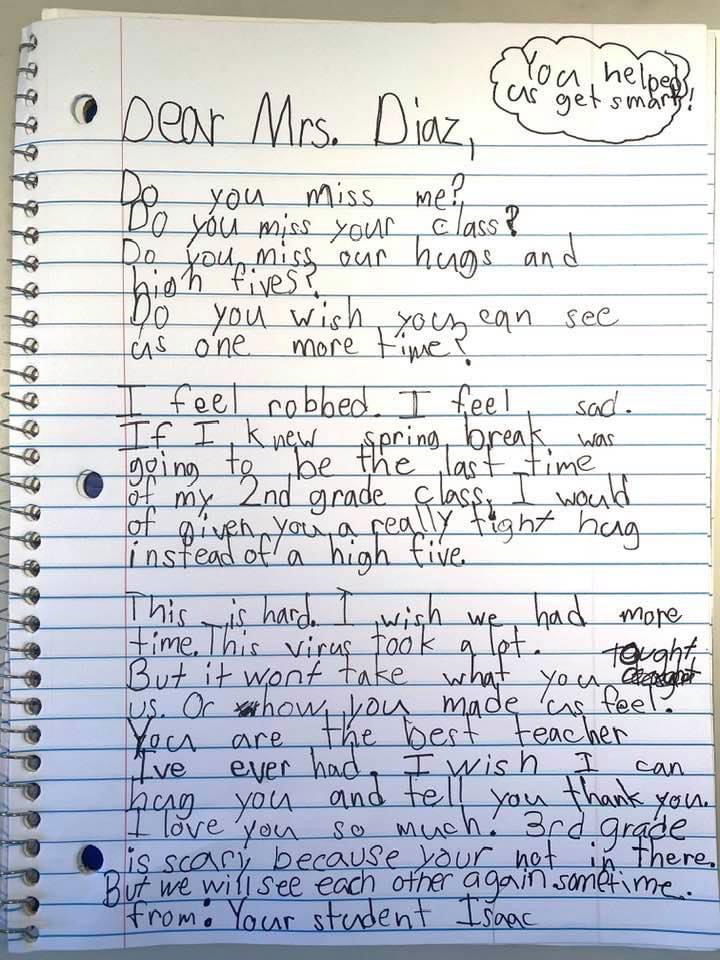 You helped
us get smart!
Dear Mrs. Diaz,
Do you miss me?
Do you miss your class?
Do you miss our hugs and
high fives?
Do you wish you can see
us one more time?
I feel robbed. I feel sad.
If I knew spring break was
going to be the last time
of my 2nd grade class, I would
of given you a really tight hug
instead of a high five.
This is hard. I wish we had more
time. This virus took a lot.
But it wont take what you tought
us. Or how you made us feel.
You are the best teacher
I've ever had. I wish I can
hug you and tell you thank you.
I love you so much. 3rd grade
is scary because your not in there.
But we will see each other again sometime.
from: Your student Isaac